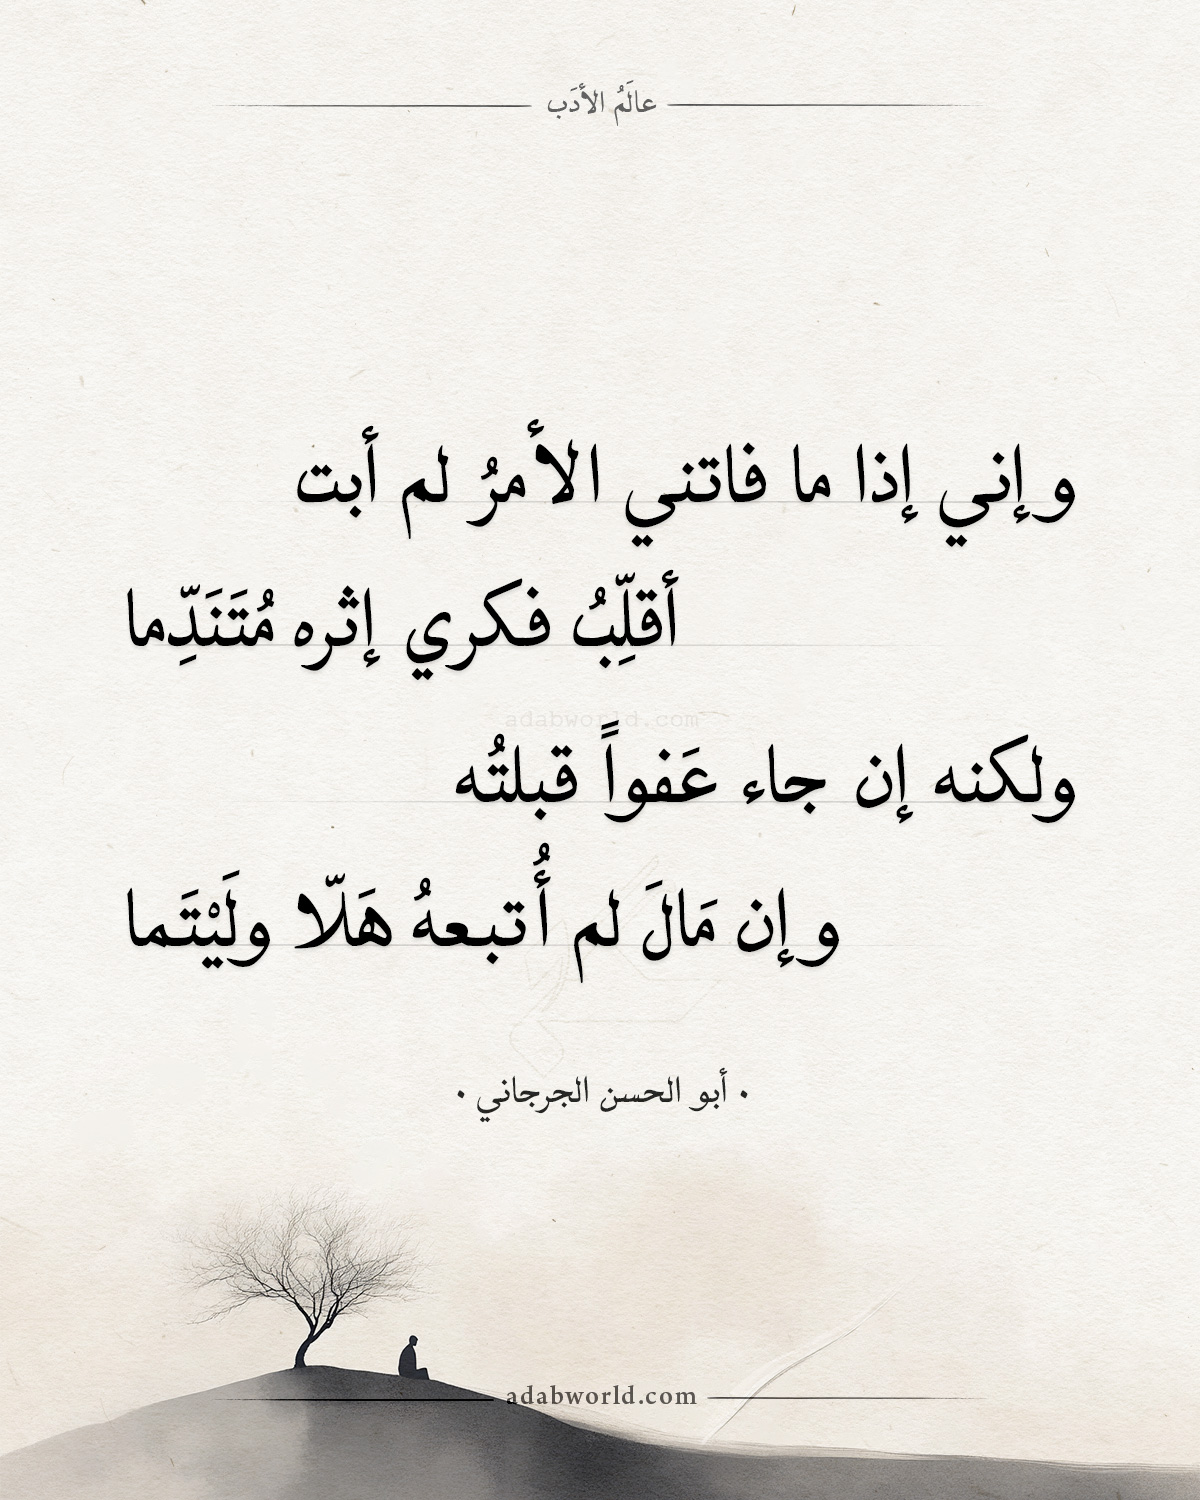 عالَمُ الأدَب
وإني إذا ما فاتني الأمرُ لم أبت
أقلِّبُ فكري إثره مُتَنَدِّما
adabworld.com
ولكنه إن جاء عَفواً قبلتُه
وإن مَالَ لم أُتبعهُ هَلّا ولَيْتَما
• أبو الحسن الجرجاني •
adabworld.com